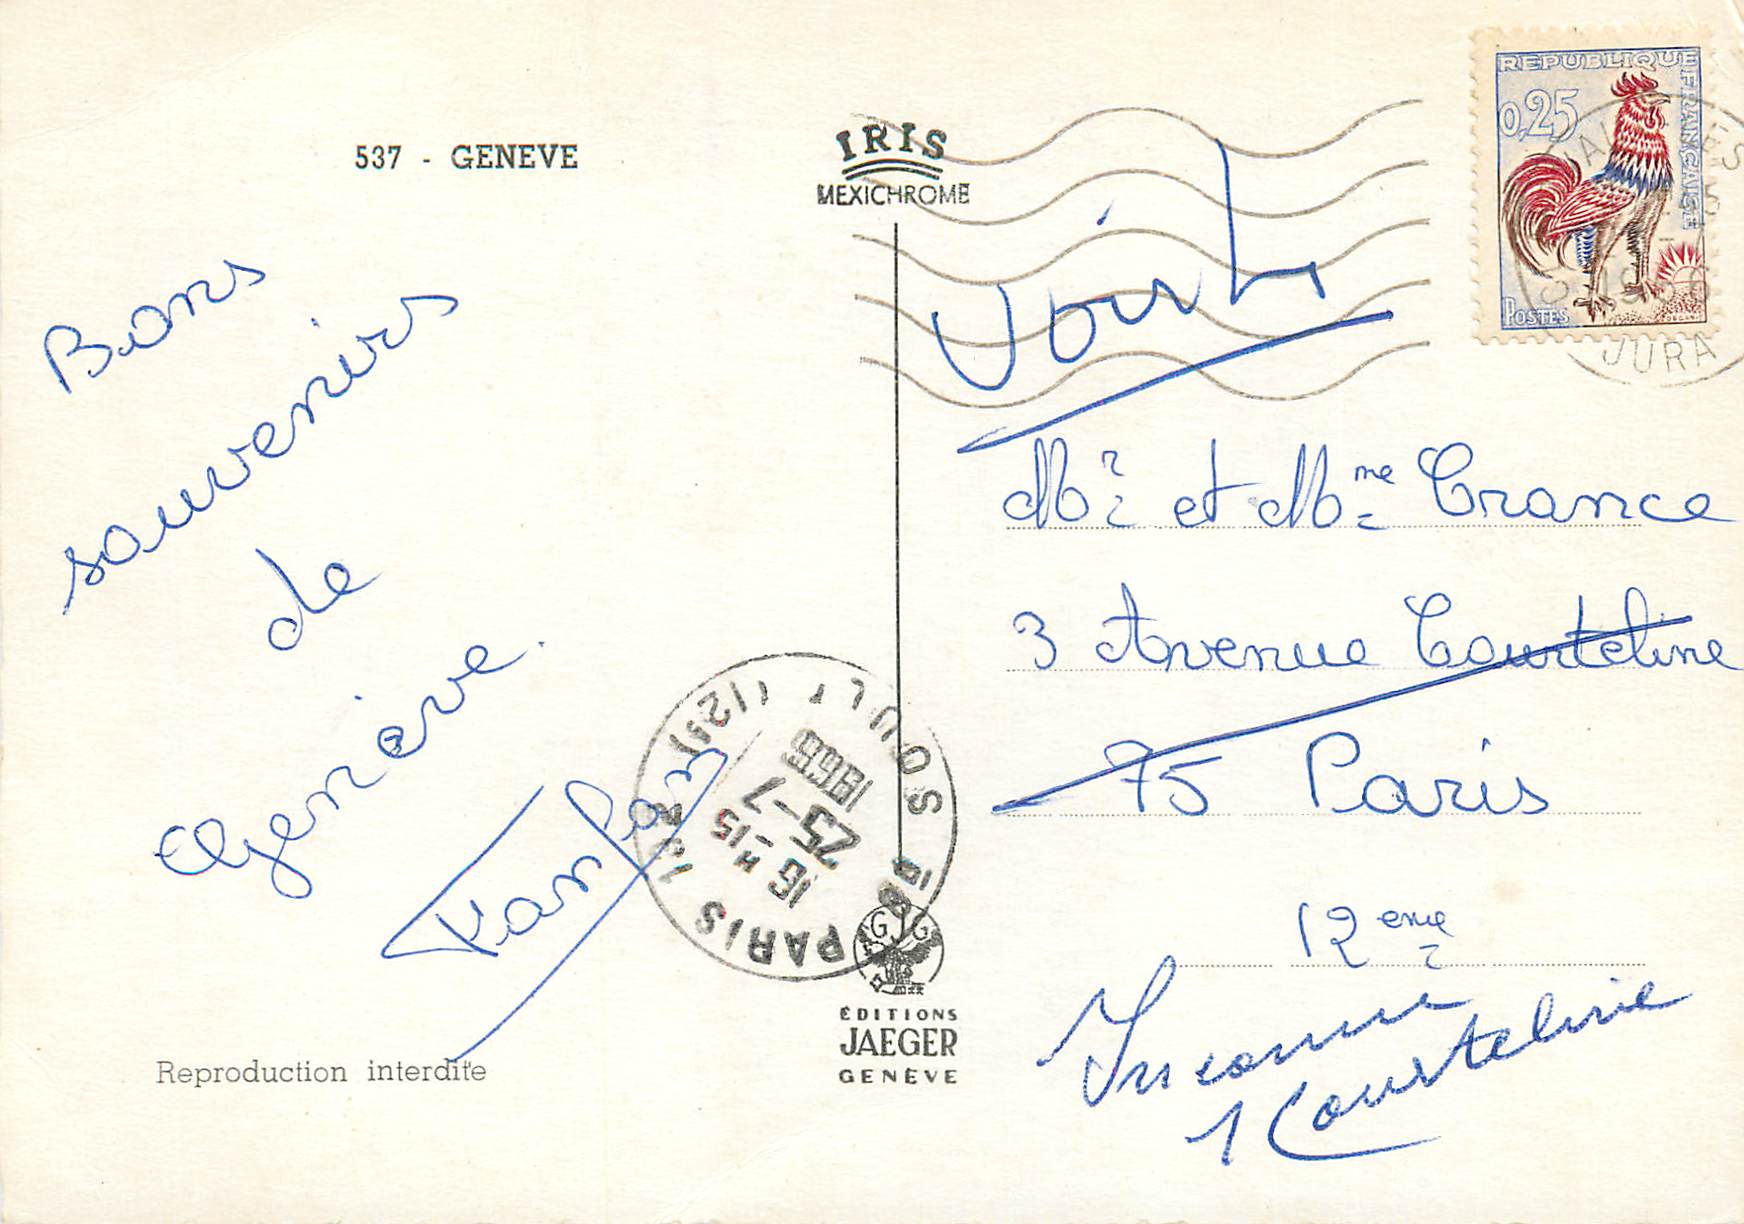 537 - GENEVE
IRIS
MEXICHROME
REPUBLIQUE
FRANÇAISE
0,25
POSTES
JURA
Bons
souvenirs
de
Genève.
Mr et Mme France
3 Avenue Courteline
75 Paris
12eme
Inconnu
1 Courteline
PARIS
16 H 15
25-7
1966
GJG
ÉDITIONS
JAEGER
GENÈVE
Reproduction interdite